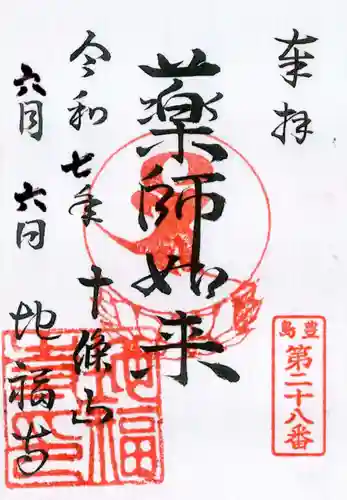 奉拝
豊島
第二十八番
薬師如来
令和七年
十條山
六月六日
地福寺